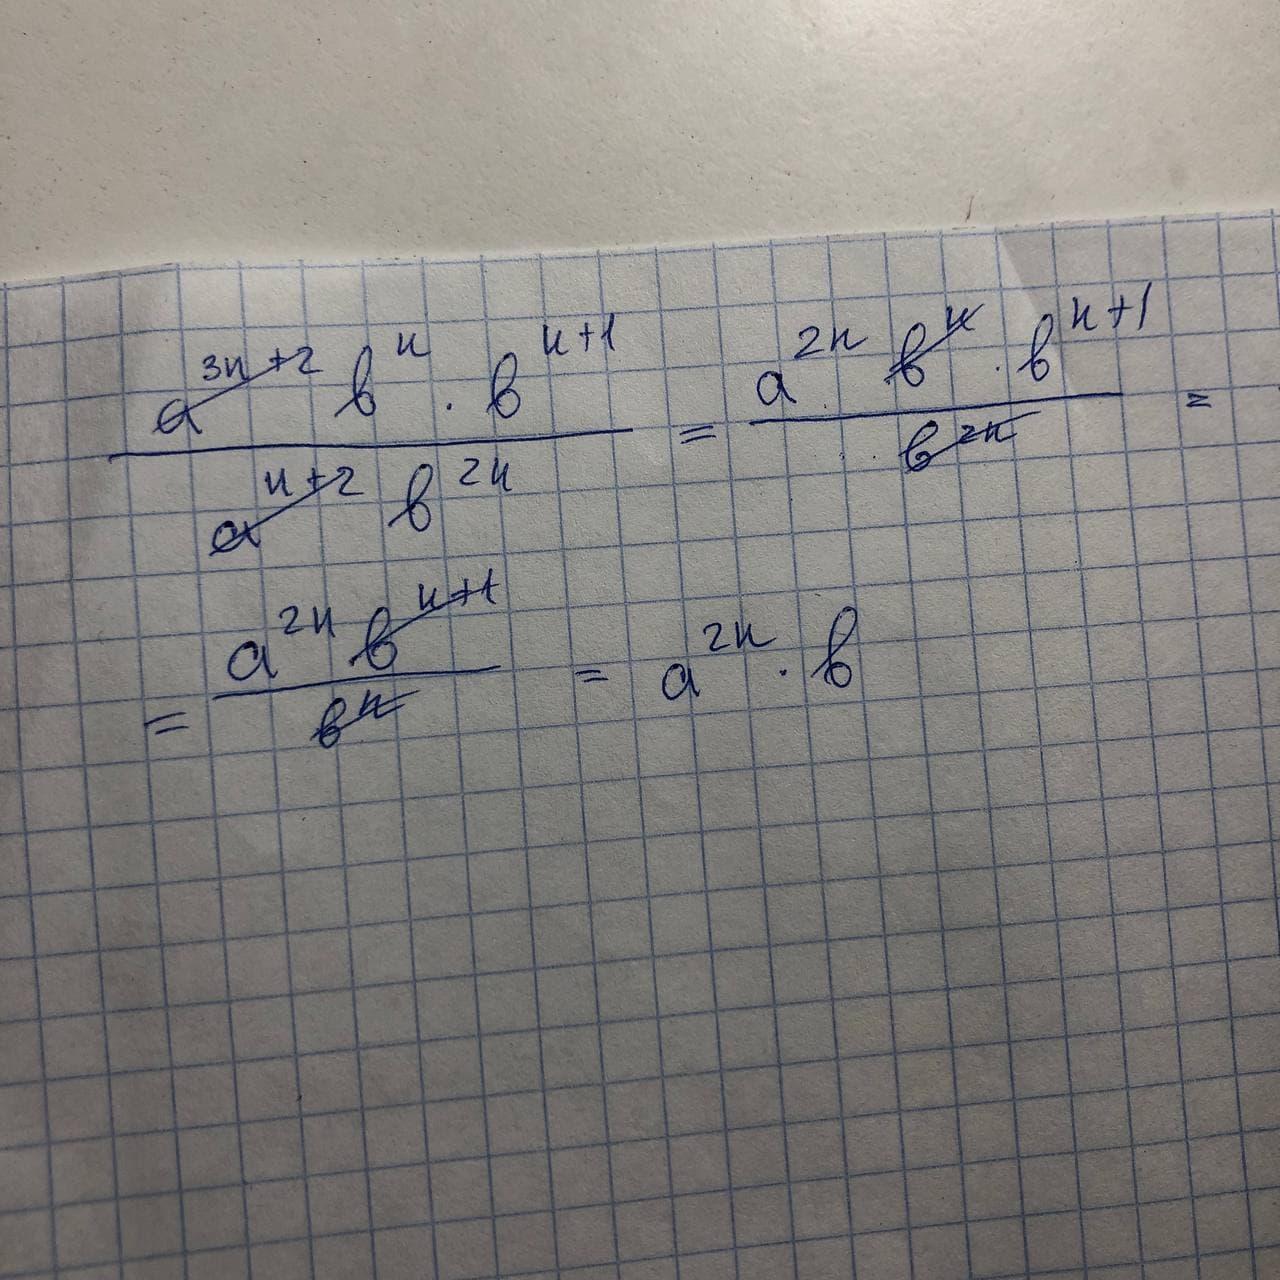 a^{3n+2} b^n · b^{n+1} / a^{n+2} b^{2n} = a^{2n} b^n · b^{n+1} / b^{2n} =
= a^{2n} b^{n+1} / b^n = a^{2n} · b